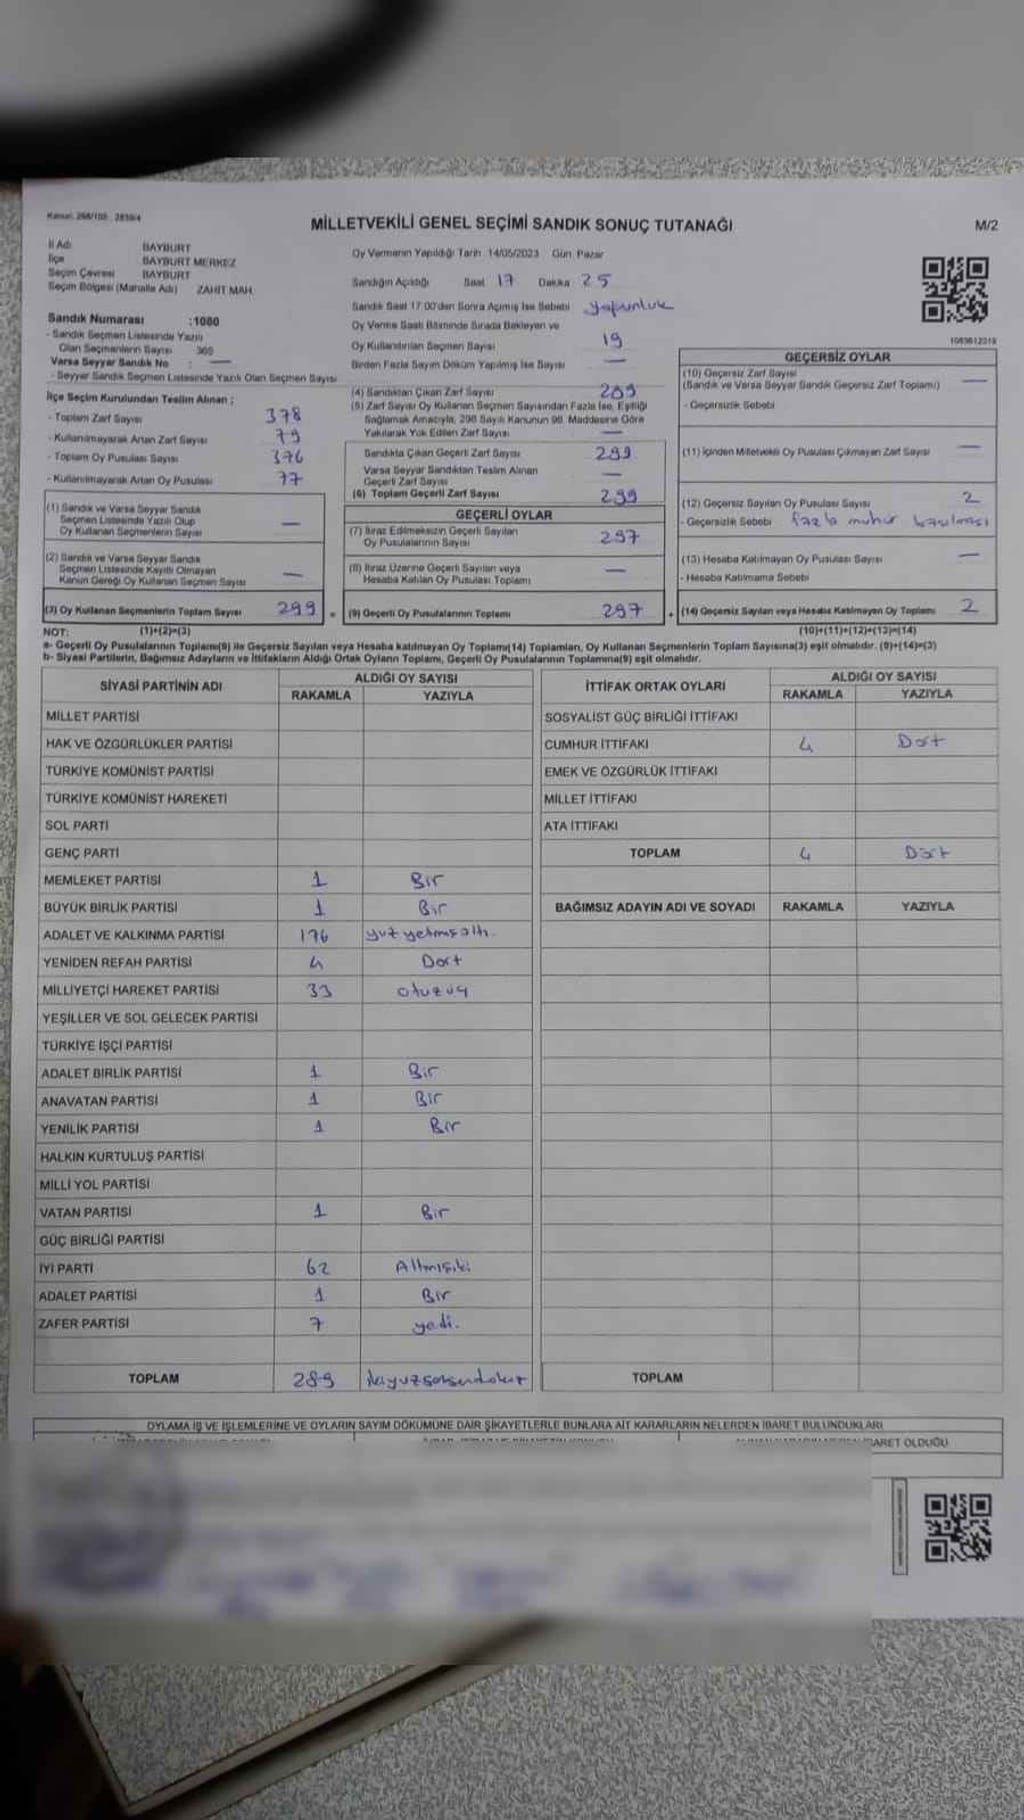 MİLLETVEKİLİ GENEL SEÇİMİ SANDIK SONUÇ TUTANAĞI
M/2
İl Adı BAYBURT
İlçe BAYBURT MERKEZ
Seçim Çevresi BAYBURT
Seçim Bölgesi (Mahalle Adı) ZAHİT MAH.
Sandık Numarası :1080
- Sandık Seçmen Listesinde Yazılı
Olan Seçmenlerin Sayısı 360
Varsa Seyyar Sandık No : —
- Seyyar Sandık Seçmen Listesinde Yazılı Olan Seçmen Sayısı
İlçe Seçim Kurulundan Teslim Alınan ;
- Toplam Zarf Sayısı 378
- Kullanılmayarak Artan Zarf Sayısı 79
- Toplam Oy Pusulası Sayısı 376
- Kullanılmayarak Artan Oy Pusulası 77
(1) Sandık ve Varsa Seyyar Sandık
Seçmen Listesinde Yazılı Olup
Oy Kullanan Seçmenlerin Sayısı —
(2) Sandık ve Varsa Seyyar Sandık
Seçmen Listesinde Kayıtlı Olmayan
Kanun Gereği Oy Kullanan Seçmen Sayısı —
(3) Oy Kullanan Seçmenlerin Toplam Sayısı 299 =
Oy Vermenin Yapıldığı Tarih 14/05/2023 Gün Pazar
Sandığın Açıldığı Saat 17 Dakika 25
Sandık Saat 17.00'den Sonra Açılmış İse Sebebi yoğunluk
Oy Verme Saati Bitiminde Sırada Bekleyen ve
Oy Kullandırılan Seçmen Sayısı 19
Birden Fazla Sayım Döküm Yapılmış İse Sayısı —
(4) Sandıktan Çıkan Zarf Sayısı 299
(5) Zarf Sayısı Oy Kullanan Seçmen Sayısından Fazla İse, Eşitliği
Sağlamak Amacıyla, 298 Sayılı Kanunun 98. Maddesine Göre
Yakılarak Yok Edilen Zarf Sayısı —
Sandıkta Çıkan Geçerli Zarf Sayısı 299
Varsa Seyyar Sandıktan Teslim Alınan
Geçerli Zarf Sayısı —
(6) Toplam Geçerli Zarf Sayısı 299
GEÇERLİ OYLAR
(7) İtiraz Edilmeksizin Geçerli Sayılan
Oy Pusulalarının Sayısı 297
(8) İtiraz Üzerine Geçerli Sayılan veya
Hesaba Katılan Oy Pusulası Toplamı —
(9) Geçerli Oy Pusulalarının Toplamı 297 +
1083612319
GEÇERSİZ OYLAR
(10) Geçersiz Zarf Sayısı
(Sandık ve Varsa Seyyar Sandık Geçersiz Zarf Toplamı) —
- Geçersizlik Sebebi
(11) İçinden Milletvekili Oy Pusulası Çıkmayan Zarf Sayısı —
(12) Geçersiz Sayılan Oy Pusulası Sayısı 2
- Geçersizlik Sebebi fazla mühür basılması
(13) Hesaba Katılmayan Oy Pusulası Sayısı —
- Hesaba Katılmama Sebebi
(14) Geçersiz Sayılan veya Hesaba Katılmayan Oy Toplamı 2
NOT: (1)+(2)=(3) (10)+(11)+(12)+(13)=(14)
a- Geçerli Oy Pusulalarının Toplamı(9) ile Geçersiz Sayılan veya Hesaba katılmayan Oy Toplamı(14) Toplamları, Oy Kullanan Seçmenlerin Toplam Sayısına(3) eşit olmalıdır. (9)+(14)=(3)
b- Siyasi Partilerin, Bağımsız Adayların ve İttifakların Aldığı Ortak Oyların Toplamı, Geçerli Oy Pusulalarının Toplamına(9) eşit olmalıdır.
SİYASİ PARTİNİN ADI ALDIĞI OY SAYISI
RAKAMLA YAZIYLA
MİLLET PARTİSİ
HAK VE ÖZGÜRLÜKLER PARTİSİ
TÜRKİYE KOMÜNİST PARTİSİ
TÜRKİYE KOMÜNİST HAREKETİ
SOL PARTİ
GENÇ PARTİ
MEMLEKET PARTİSİ 1 Bir
BÜYÜK BİRLİK PARTİSİ 1 Bir
ADALET VE KALKINMA PARTİSİ 176 yüz yetmiş altı.
YENİDEN REFAH PARTİSİ 4 Dört
MİLLİYETÇİ HAREKET PARTİSİ 33 otuzüç
YEŞİLLER VE SOL GELECEK PARTİSİ
TÜRKİYE İŞÇİ PARTİSİ
ADALET BİRLİK PARTİSİ 1 Bir
ANAVATAN PARTİSİ 1 Bir
YENİLİK PARTİSİ 1 Bir
HALKIN KURTULUŞ PARTİSİ
MİLLİ YOL PARTİSİ
VATAN PARTİSİ 1 Bir
GÜÇ BİRLİĞİ PARTİSİ
İYİ PARTİ 62 Altmışiki
ADALET PARTİSİ 1 Bir
ZAFER PARTİSİ 7 yedi.
TOPLAM 289 ikiyüzseksendokuz
İTTİFAK ORTAK OYLARI ALDIĞI OY SAYISI
RAKAMLA YAZIYLA
SOSYALİST GÜÇ BİRLİĞİ İTTİFAKI
CUMHUR İTTİFAKI 4 Dört
EMEK VE ÖZGÜRLÜK İTTİFAKI
MİLLET İTTİFAKI
ATA İTTİFAKI
TOPLAM 4 Dört
BAĞIMSIZ ADAYIN ADI VE SOYADI RAKAMLA YAZIYLA
TOPLAM
OYLAMA İŞ VE İŞLEMLERİNE VE OYLARIN SAYIM DÖKÜMÜNE DAİR ŞİKAYETLERLE BUNLARA AİT KARARLARIN NELERDEN İBARET BULUNDUKLARI